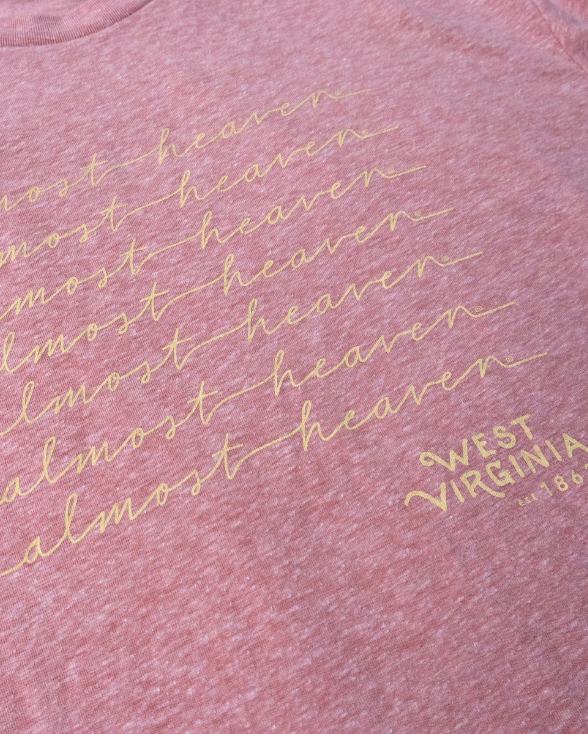 most heaven®
most heaven®
most heaven®
lmost heaven®
lmost heaven®
almost heaven®
almost heaven®
WEST
VIRGINIA
EST 186